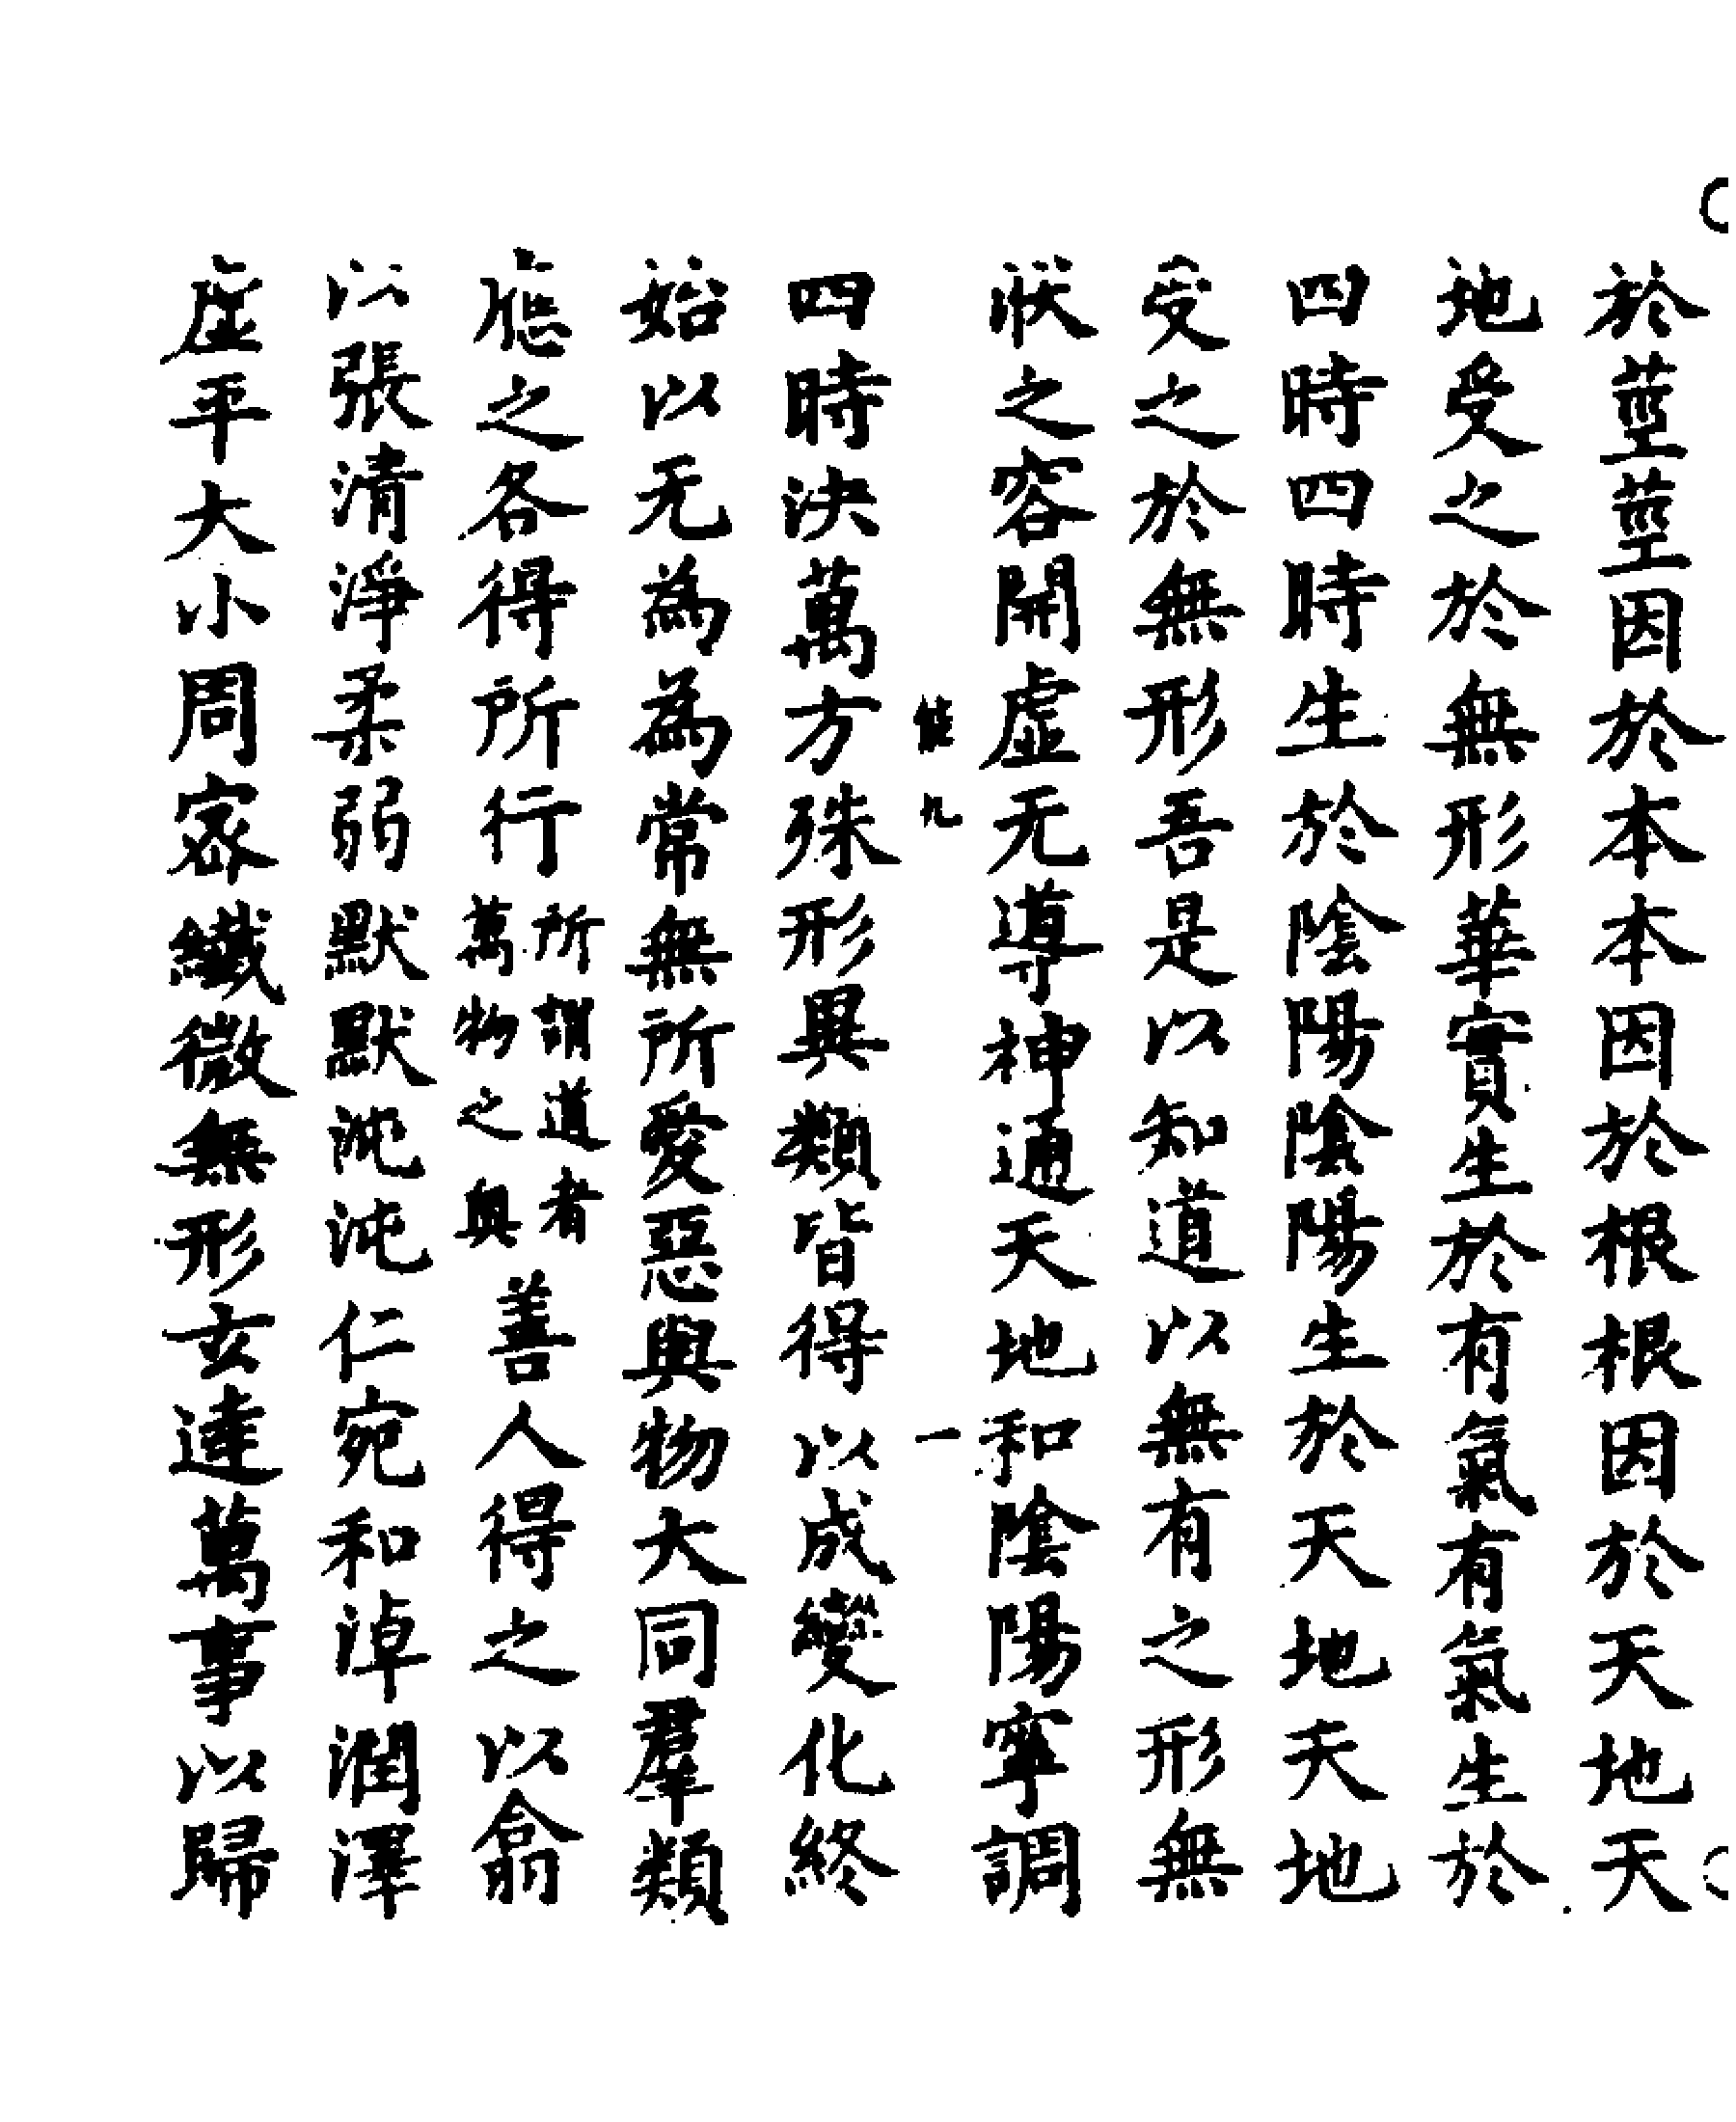 於莖莖因於本本因於根根因於天地天
地受之於無形華實生於有氣有氣生於
四時四時生於陰陽陰陽生於天地天地
受之於無形吾是以知道以無有之形無
狀之容開虛无導神通天地和陰陽寧調
能九
一
四時決萬方殊形異類皆得以成變化終
始以无為為常無所愛惡與物大同羣類
應之各得所行
所謂道者
萬物之奧
善人得之以翕
以張清淨柔弱默默沌沌仁宛和淖潤澤
虛平大小周密纖微無形玄達萬事以歸